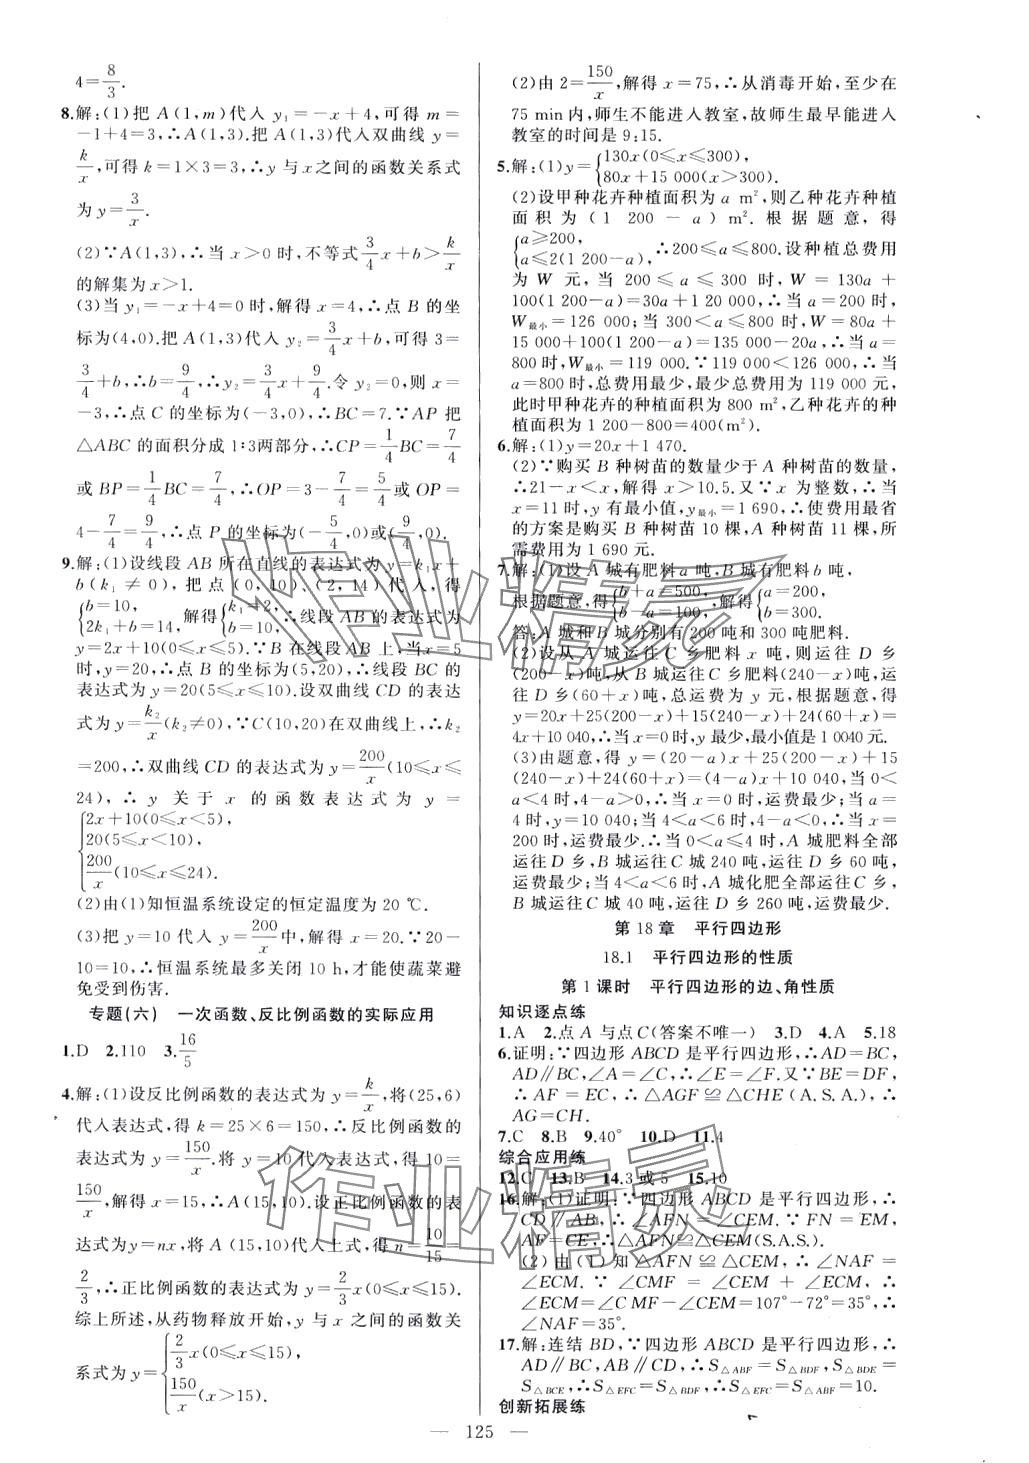 4=8/3.
8.解:(1)把 A(1,m)代入 y₁=-x+4,可得 m=
-1+4=3,∴A(1,3).把 A(1,3)代入双曲线 y=
k/x,可得 k=1×3=3,∴y 与 x 之间的函数关系式
为 y=3/x.
(2)∵A(1,3),∴当 x>0 时,不等式 3/4x+b>k/x
的解集为 x>1.
(3)当 y₁=-x+4=0 时,解得 x=4,∴点 B 的坐
标为(4,0).把 A(1,3)代入 y₂=3/4x+b,可得 3=
3/4+b,∴b=9/4,∴y₂=3/4x+9/4.令 y₂=0,则 x=
-3,∴点 C 的坐标为(-3,0),∴BC=7.∵AP 把
△ABC 的面积分成 1∶3两部分,∴CP=1/4BC=7/4
或 BP=1/4BC=7/4,∴OP=3-7/4=5/4或 OP=
4-7/4=9/4,∴点 P 的坐标为(-5/4,0)或(9/4,0).
9.解:(1)设线段 AB 所在直线的表达式为 y=k₁x+
b(k₁≠0),把点(0,10),(2,14)代入,得
{b=10, 2k₁+b=14, 解得{k₁=2, b=10, ∴线段 AB 的表达式为
y=2x+10(0≤x≤5).∵B 在线段 AB 上,当 x=5
时,y=20,∴点 B 的坐标为(5,20),∴线段 BC 的
表达式为 y=20(5≤x≤10).设双曲线 CD 的表达
式为 y=k₂/x(k₂≠0),∵C(10,20)在双曲线上,∴k₂
=200,∴双曲线 CD 的表达式为 y=200/x(10≤x≤
24),∴y 关于 x 的函数表达式为 y=
{2x+10(0≤x<5),
20(5≤x<10),
200/x(10≤x≤24).
(2)由(1)知恒温系统设定的恒定温度为 20 ℃.
(3)把 y=10 代入 y=200/x中,解得 x=20.∵20-
10=10,∴恒温系统最多关闭 10 h,才能使蔬菜避
免受到伤害.
专题(六) 一次函数、反比例函数的实际应用
1.D 2.110 3.16/5
4.解:(1)设反比例函数的表达式为 y=k/x,将(25,6)
代入表达式,得 k=25×6=150,∴反比例函数的
表达式为 y=150/x.将 y=10 代入表达式,得 10=
150/x,解得 x=15,∴A(15,10).设正比例函数的表
达式为 y=nx,将 A(15,10)代入上式,得 n=10/15=
2/3,∴正比例函数的表达式为 y=2/3x(0≤x≤15).
综上所述,从药物释放开始,y 与 x 之间的函数关
系式为 y={2/3x(0≤x≤15),
150/x(x>15).
(2)由 2=150/x,解得 x=75,∴从消毒开始,至少在
75 min内,师生不能进入教室,故师生最早能进入
教室的时间是 9:15.
5.解:(1)y={130x(0≤x≤300),
80x+15 000(x>300).
(2)设甲种花卉种植面积为 a m²,则乙种花卉种植
面积为(1 200-a)m².根据题意,得
{a≥200, a≤2(1200-a), ∴200≤a≤800.设种植总费用
为 W 元,当 200≤a≤300 时,W=130a+
100(1 200-a)=30a+1 20 000,∴当 a=200 时,
W最小=126 000;当 300<a≤800时,W=80a+
15 000+100(1 200-a)=135 000-20a,∴当 a=
800 时,W最小=119 000.∵119 000<126 000,∴当
a=800时,总费用最少,最少总费用为 119 000 元,
此时甲种花卉的种植面积为 800 m²,乙种花卉的种
植面积为 1 200-800=400(m²).
6.解:(1)y=20x+1 470.
(2)∵购买 B 种树苗的数量少于 A 种树苗的数量,
∴21-x<x,解得 x>10.5.又∵x 为整数,∴当
x=11时,y 有最小值,y最小=1 690,∴使费用最省
的方案是购买 B 种树苗 10 棵,A 种树苗 11 棵,所
需费用为 1 690 元.
7.解:(1)设 A 城有肥料 a 吨,B 城有肥料 b 吨,
根据题意,得{b+a=500, b-a=100, 解得{a=200, b=300.
答:A 城和 B 城分别有 200 吨和 300吨肥料.
(2)设从 A 城运往 C 乡肥料 x 吨,则运往 D 乡
(200-x)吨,从 B 城运往 C 乡肥料(240-x)吨,运
往 D 乡(60+x)吨,总运费为 y 元,根据题意,得
y=20x+25(200-x)+15(240-x)+24(60+x)=
4x+10 040,∴当 x=0时,y 最少,最小值是 1 0040 元.
(3)由题意,得 y=(20-a)x+25(200-x)+15
(240-x)+24(60+x)=(4-a)x+10 040,当 0<
a<4 时,4-a>0,∴当 x=0 时,运费最少;当 a=
4时,y=10 040;当 4<a<6 时,4-a<0,∴当 x=
200 时,运费最少.∴当 0<a≤4 时,A 城肥料全部
运往 D 乡,B 城运往 C 城 240 吨,运往 D 乡 60 吨,
运费最少;当 4<a<6 时,A 城化肥全部运往 C 乡,
B 城运往 C 城 40 吨,运往 D 乡 260 吨,运费最少.
第 18 章 平行四边形
18.1 平行四边形的性质
第 1 课时 平行四边形的边、角性质
知识逐点练
1.A 2.点 A 与点 C(答案不唯一) 3.D 4.A 5.18
6.证明:∵四边形 ABCD 是平行四边形,∴AD=BC,
AD∥BC,∠A=∠C,∴∠E=∠F.又∵BE=DF,
∴AF=EC,∴△AGF≌△CHE(A.S.A.),∴
AG=CH.
7.C 8.B 9.40° 10.D 11.4
综合应用练
12.C 13.B 14.3 或 5 15.10
16.解:(1)证明:∵四边形 ABCD 是平行四边形,∴
CD∥AB,∴∠AFN=∠CEM.∵FN=EM,
AF=CE,∴△AFN≌△CEM(S.A.S.).
(2)由(1)知△AFN≌△CEM,∴∠NAF=
∠ECM.∵∠CMF=∠CEM+∠ECM,∴
∠ECM=∠C MF-∠CEM=107°-72°=35°,∴
∠NAF=35°.
17.解:连结 BD,∵四边形 ABCD 是平行四边形,∴
AD∥BC,AB∥CD,∴S△ABF=S△BDF,S△BDE=
S△BCE,∴S△EFC=S△BDF,∴S△EFC=S△ABF=10.
创新拓展练
— 125 —
作业精灵
作业精灵